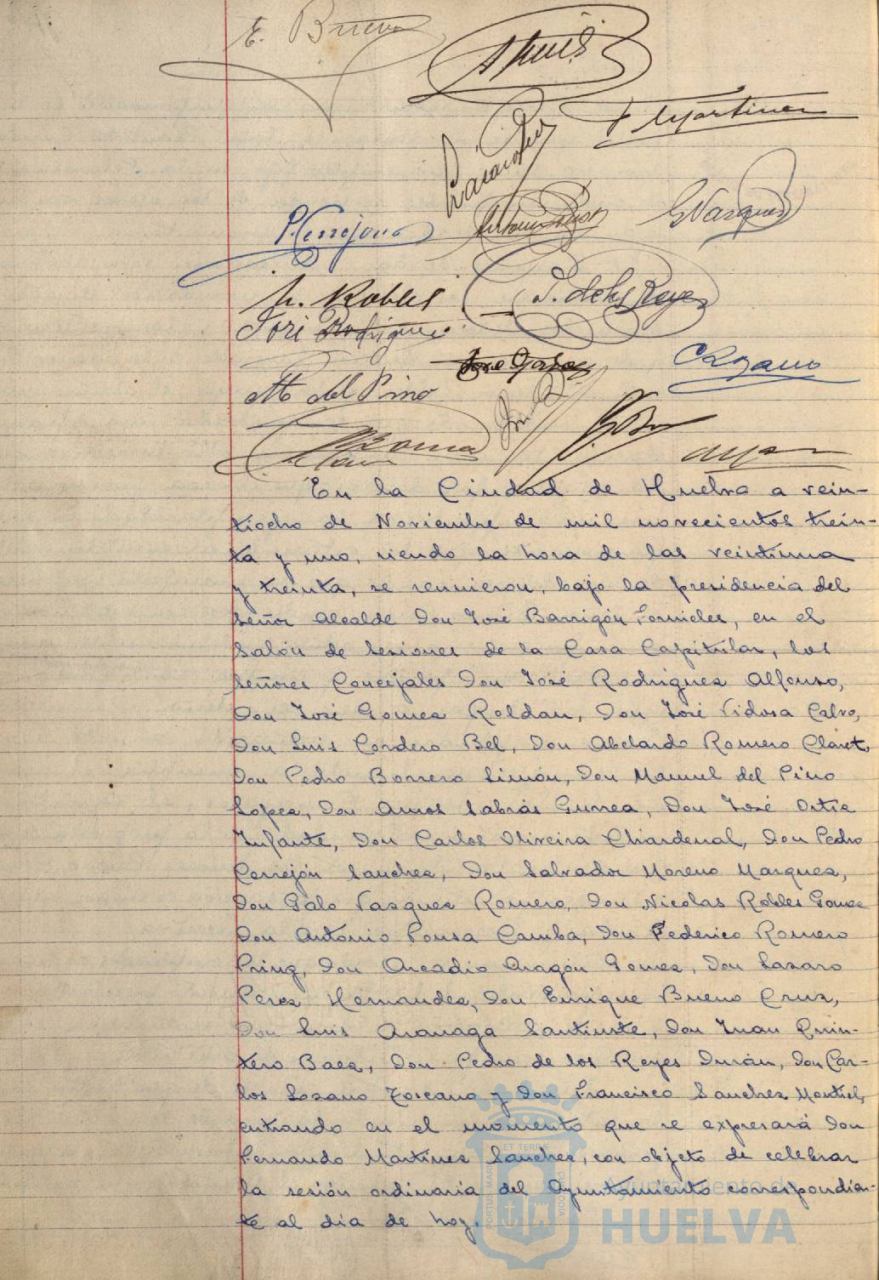 E. Bueno
F. Martinez
P. Cerrejón
G. Vazquez
N. Robles
P. de los Reyes
José Rodriguez
C. Lozano
M. del Pino
En la Ciudad de Huelva a vein-
tiocho de Noviembre de mil novecientos trein-
ta y uno, siendo la hora de las veintiuna
y treinta, se reunieron, bajo la presidencia del
Señor Alcalde Don José Barrigón Fornieles, en el
Salón de Sesiones de la Casa Capitular, los
Señores Concejales Don José Rodriguez Alfonso,
Don José Gomez Roldan, Don José Vidosa Calvo,
Don Luis Cordero Bel, Don Abelardo Romero Claret,
Don Pedro Borrero Limón, Don Manuel del Pino
Lopez, Don Amos Sabrás Gurrea, Don José Ortiz
Infante, Don Carlos Oliveira Chardenal, Don Pedro
Cerrejón Sanchez, Don Salvador Moreno Marquez,
Don Galo Vazquez Romero, Don Nicolas Robles Gomez
Don Antonio Pousa Camba, Don Federico Romero
Don Arcadio Aragón Gomez, Don Lazaro
Perez Hernandez, Don Enrique Bueno Cruz,
Don Luis Don Juan Quin-
tero Baez, Don Pedro de los Reyes Durán, Don Car-
los Lozano Toscano y Don Francisco Sanchez Montiel,
entrando en el momento que se expresará Don
Fernando Martinez Sanchez, con objeto de celebrar
la sesión ordinaria del Ayuntamiento correspondien-
te al dia de hoy.
Ayuntamiento de
HUELVA